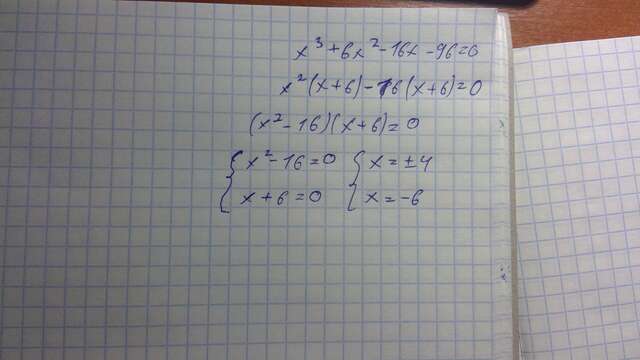 x³+6x²-16x-96=0
x²(x+6)-16(x+6)=0
(x²-16)(x+6)=0
{ x²-16=0 { x=±4
{ x+6=0 { x=-6